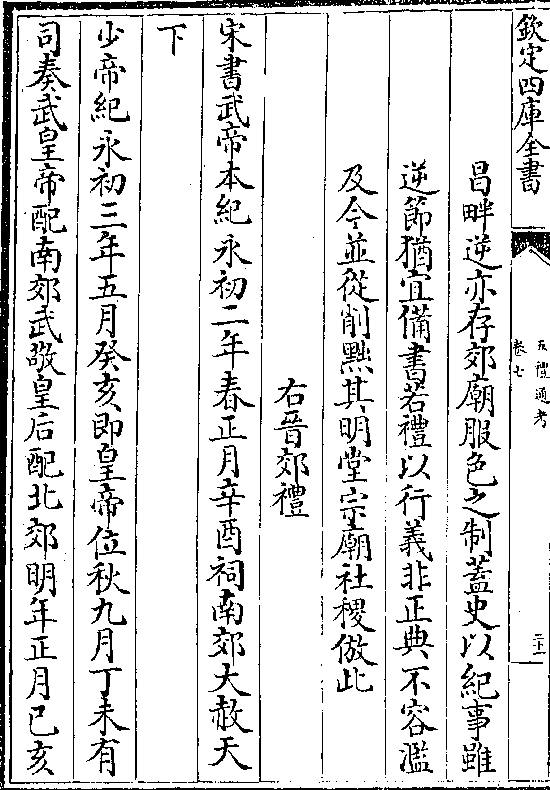 欽定四庫全書
五禮通考
卷七
二十一
昌畔逆亦存郊廟服色之制蓋史以紀事雖
逆節猶宜備書若禮以行義非正典不容濫
及今並從削黜其明堂宗廟社稷倣此
右晉郊禮
宋書武帝本紀永初二年春正月辛酉祠南郊大赦天
下
少帝紀永初三年五月癸亥即皇帝位秋九月丁未有
司奏武皇帝配南郊武敬皇后配北郊明年正月已亥